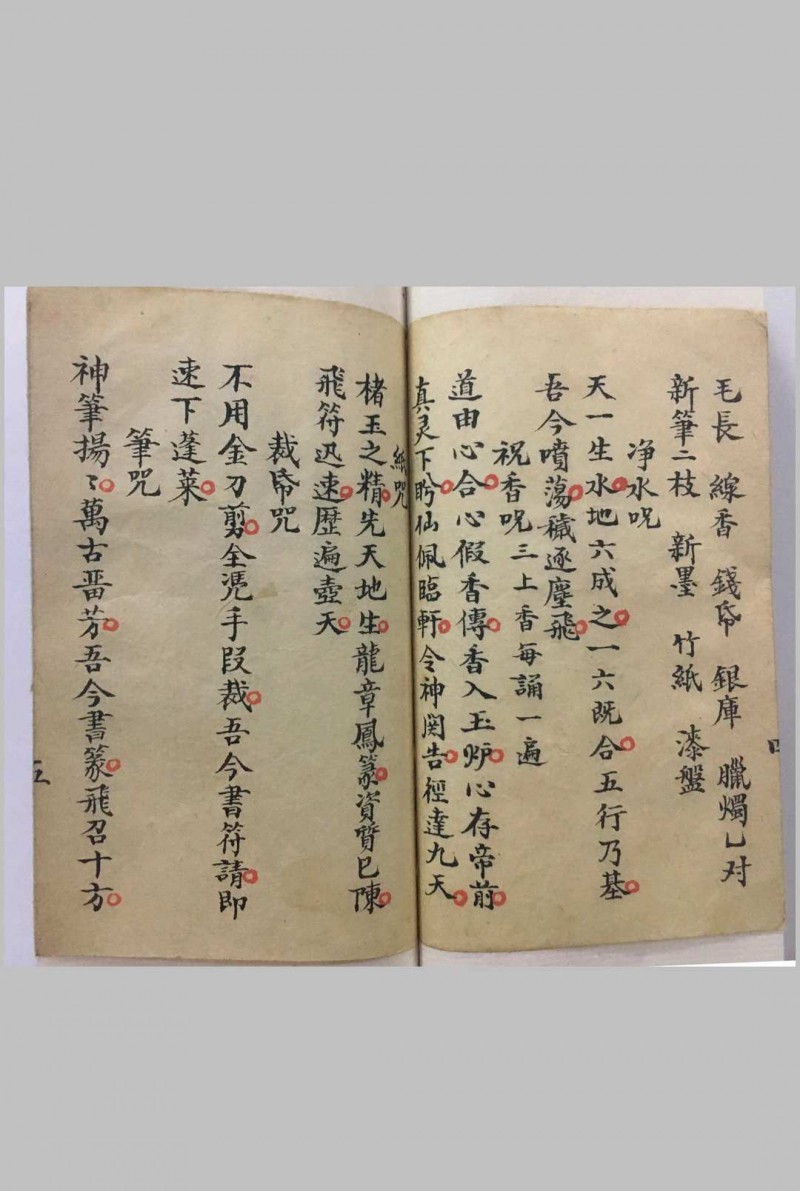 毛長 線香 錢帋 銀庫 臘燭乚对
新筆二枝 新墨 竹紙 漆盤
净水呪
天一生水地六成之一六既合五行乃基
吾今噴蕩穢逐塵飛
祝香呪三上香每誦一遍
道由心合心假香傳香入玉炉心存帝前
真灵下盻仙佩臨軒令神関告徑達九天
四
紙咒
楮玉之精先天地生龍章鳳篆資質已陳
飛符迅速歷遍壼天
裁帋咒
不用金刀剪全憑手段裁吾今書符請即
速下蓬萊
筆咒
神筆揚〻萬古晋芳吾今書篆飛召十方
五